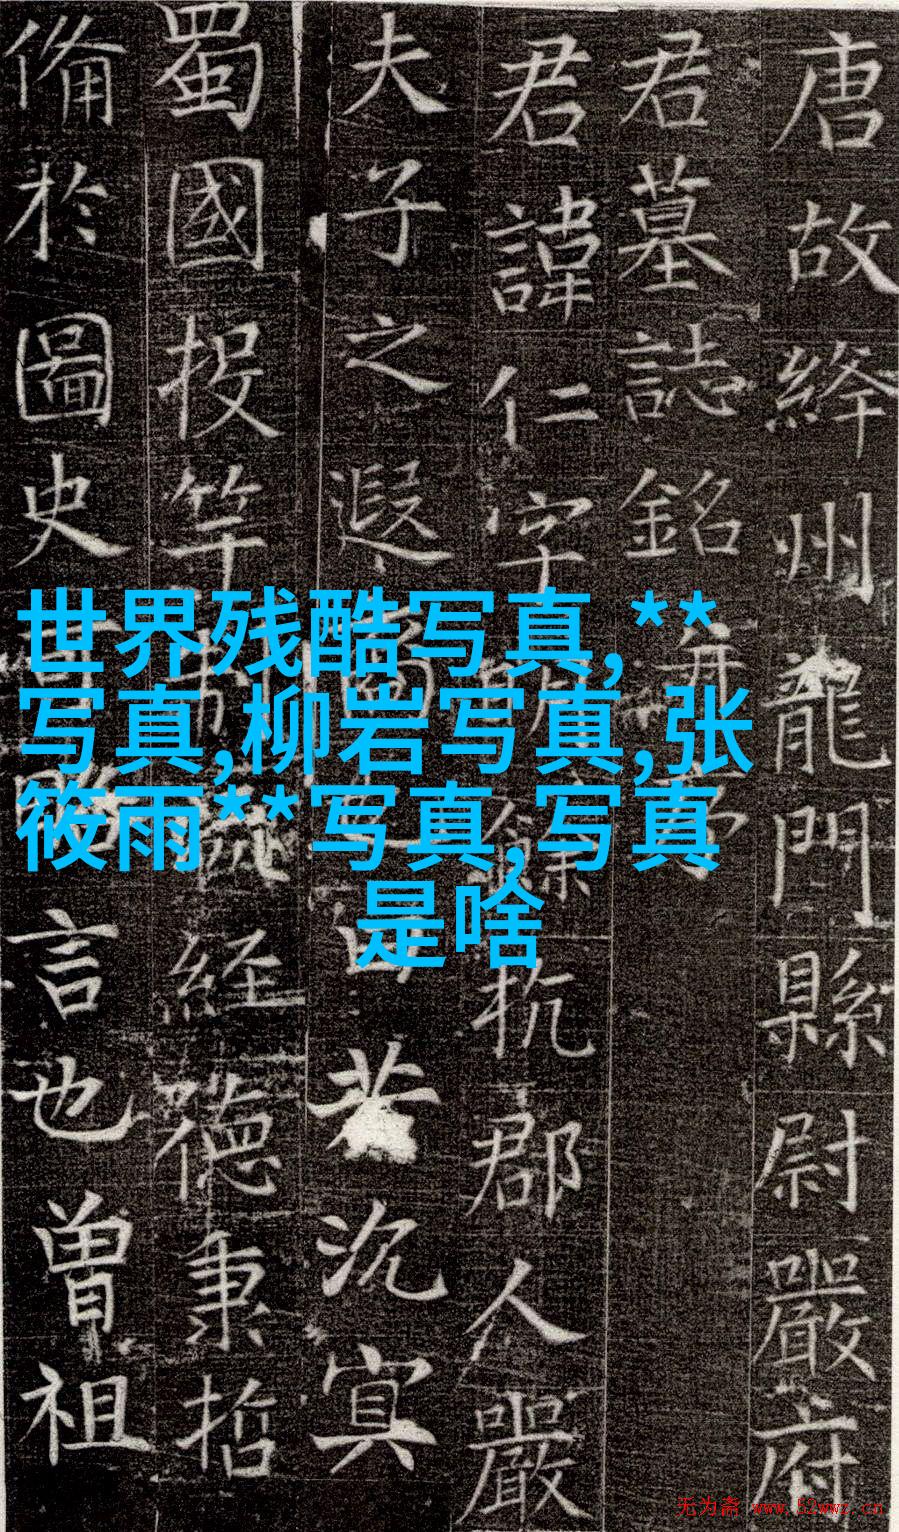 唐故絳州龍門縣尉嚴府
君墓誌銘并序
君諱仁字明餘杭郡人嚴
夫子之遐裔若沉冥
蜀國投竿經德秉哲
備於圖史言也曾祖
世界残酷写真,**
写真,柳岩写真,张
筱雨**写真,写真
是啥
无为斋 www.52wwz.cn